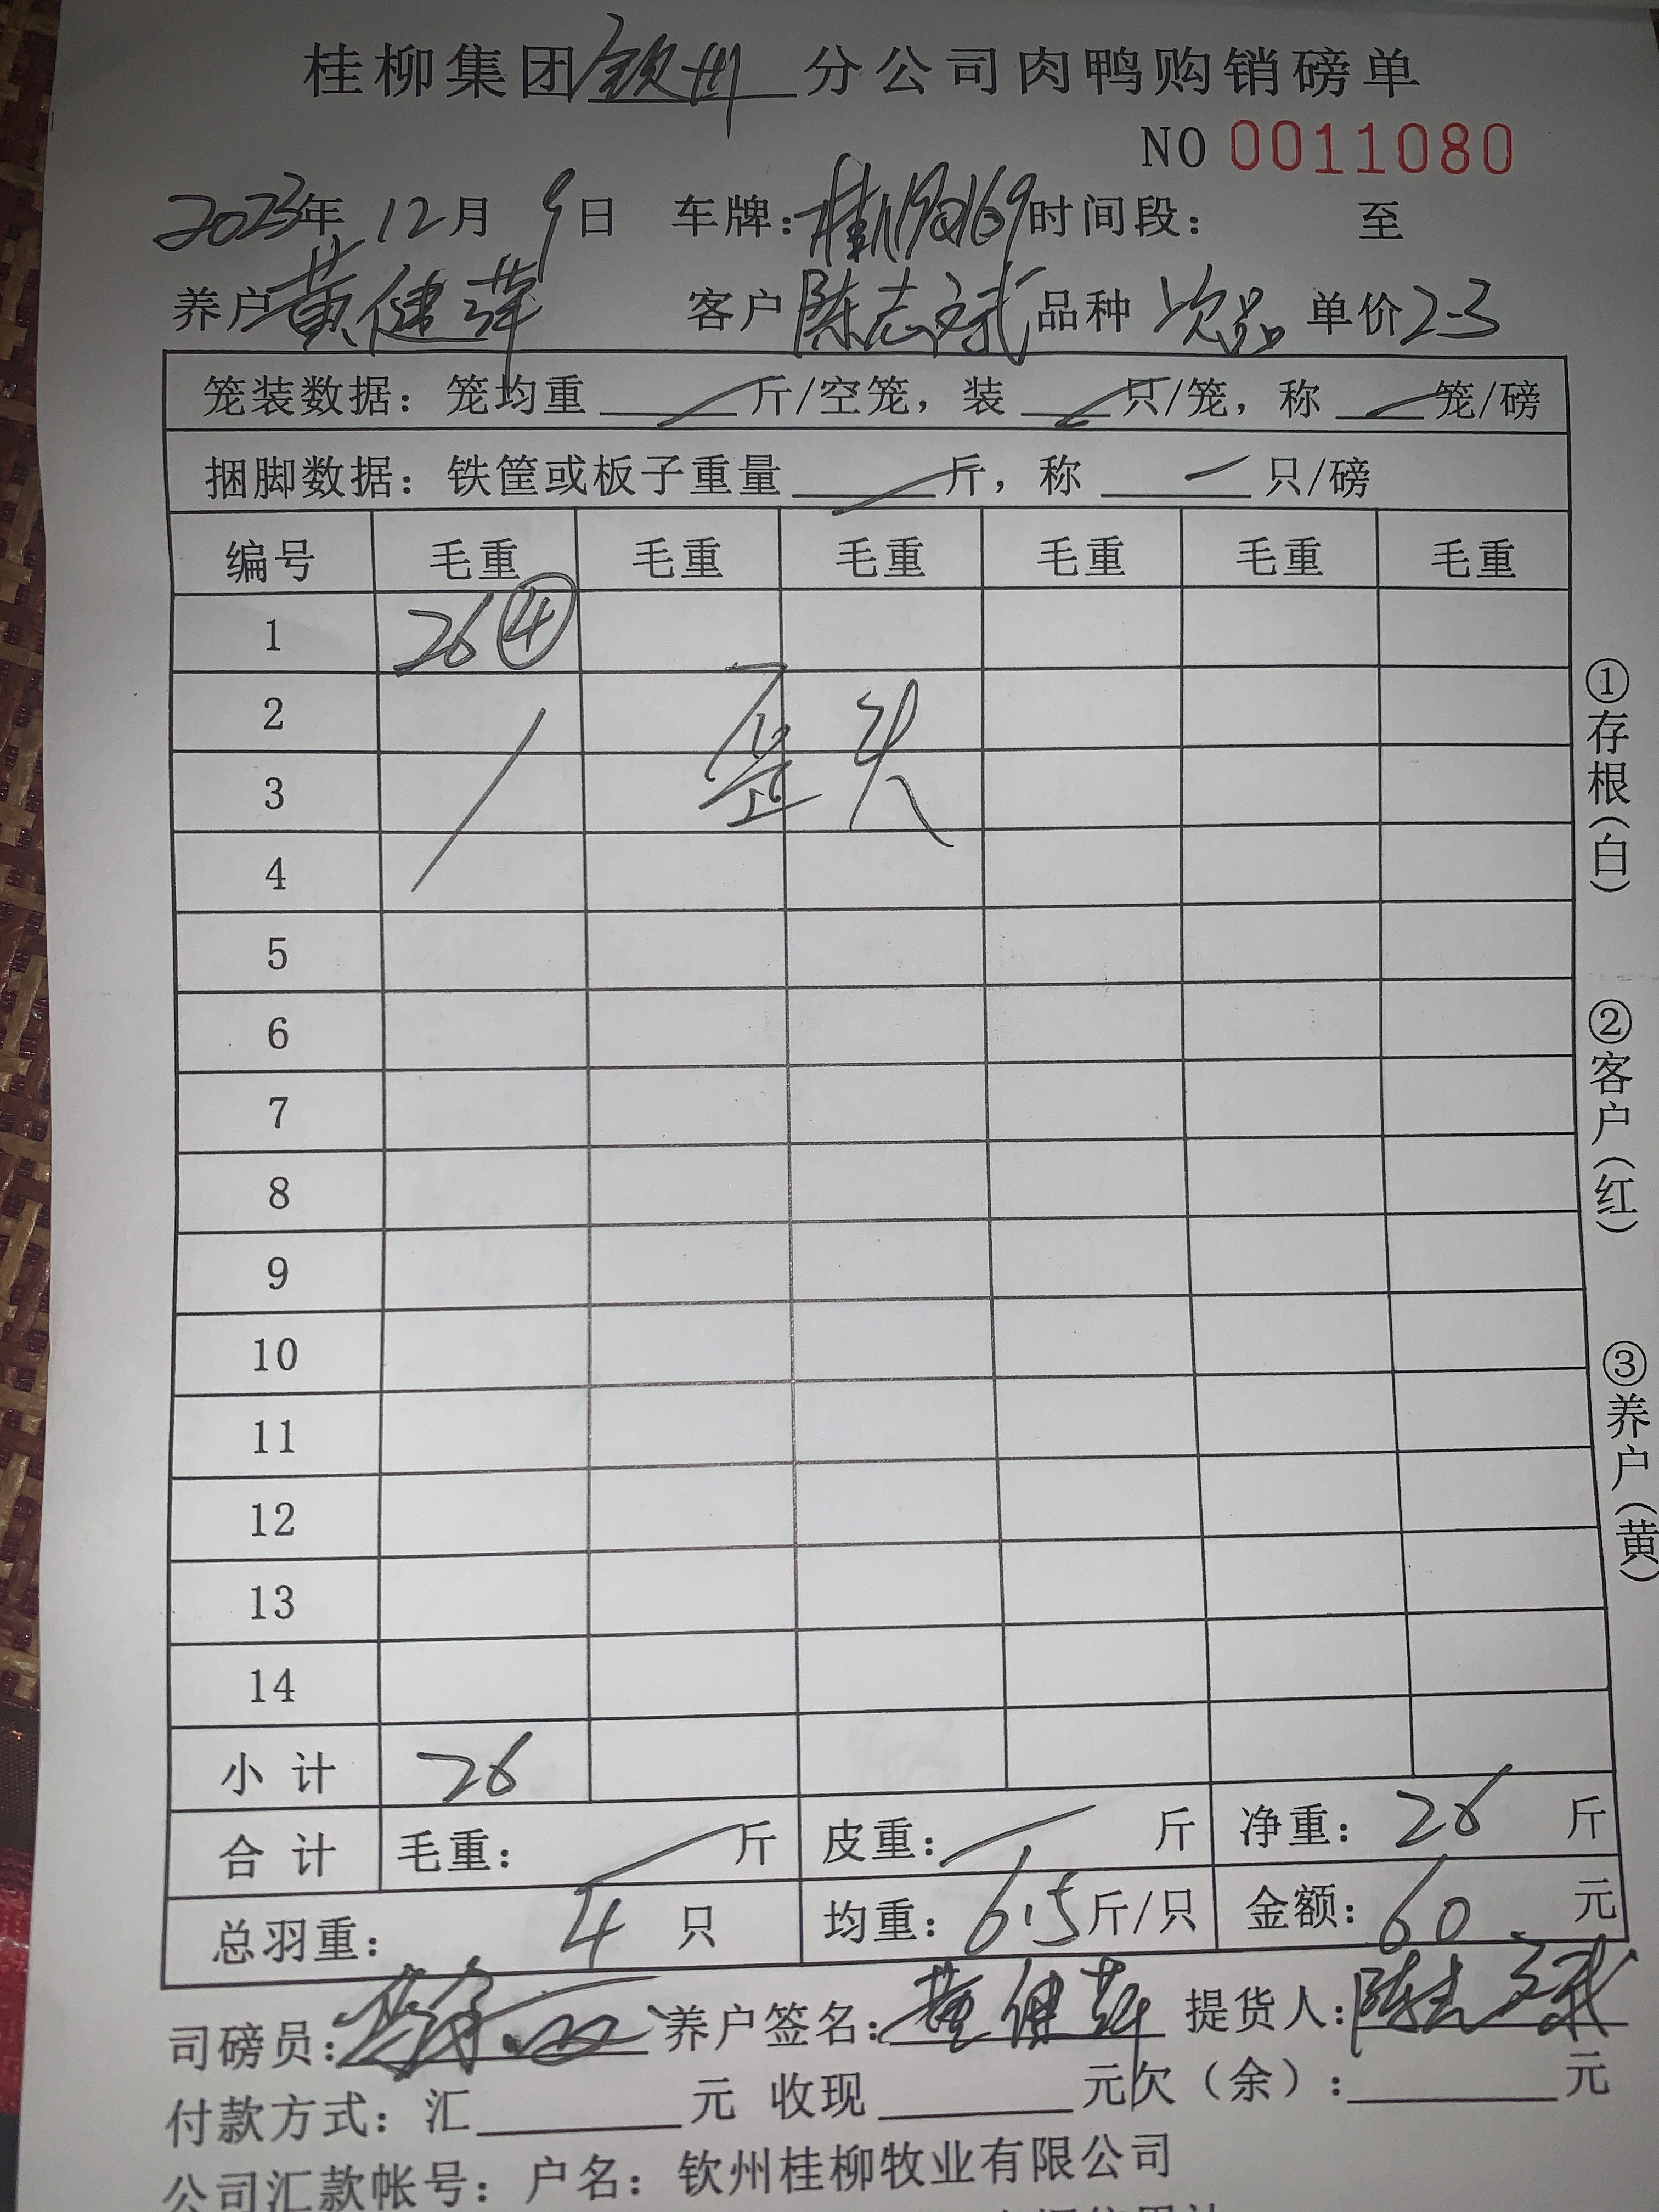 桂柳集团钦州分公司肉鸭购销磅单
NO 0011080
2023年 12月 9日 车牌: 时间段: 至
养户黄健萍 客户陈志斌 品种 次品 单价2-3
笼装数据: 笼均重 斤/空笼, 装 只/笼, 称 笼/磅
捆脚数据: 铁筐或板子重量 斤, 称 只/磅
编号 毛重 毛重 毛重 毛重 毛重 毛重
1 26 ④
2
3
4
5
6
7
8
9
10
11
12
13
14
小计 26
合计 毛重: 斤 皮重: 斤 净重: 26 斤
总羽重: 4 只 均重: 6.5斤/只 金额: 60 元
司磅员: 养户签名: 黄健萍 提货人: 陈志斌
付款方式: 汇 元 收现 元欠(余): 元
公司汇款帐号: 户名: 钦州桂柳牧业有限公司
①存根(白)
②客户(红)
③养户(黄)